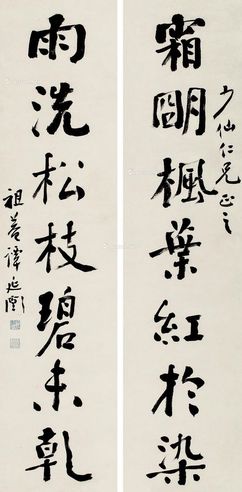 少仙仁兄正之
霜朙楓葉紅於染
雨洗松枝碧未乾
祖菴譚延闓